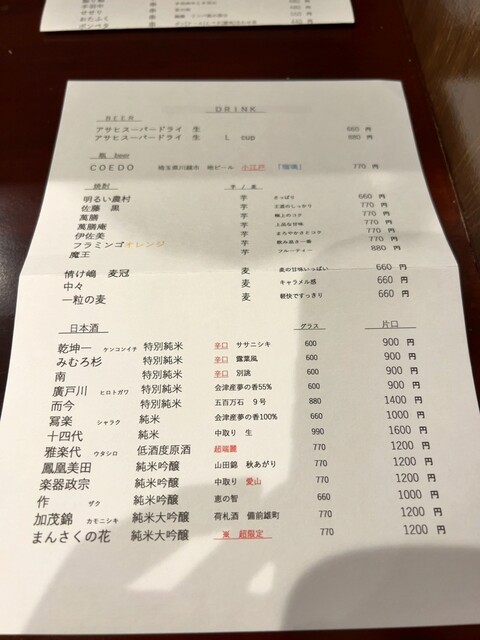 せせり
おたふく
ボンベタ
DRINK
BEER
アサヒスーパードライ 生 660 円
アサヒスーパードライ 生 L cup 880 円
瓶 beer
COEDO 埼玉県川越市 地ビール 小江戸 「瑠璃」 770 円
焼酎 芋 / 麦
明るい農村 芋 さっぱり 660 円
佐藤 黒 芋 王道のしっかり 770 円
萬膳 芋 極上のコク 770 円
萬膳庵 芋 上品な甘味 770 円
伊佐美 芋 まろやかさとコク 770 円
フラミンゴオレンジ 芋 飲み易さ一番 770 円
魔王 芋 フルーティー 880 円
情け嶋 麦冠 麦 麦の甘味いっぱい 660 円
中々 麦 キャラメル感 660 円
一粒の麦 麦 軽快ですっきり 660 円
日本酒 グラス 片口
乾坤一 ケンコンイチ 特別純米 辛口 ササニシキ 600 900 円
みむろ杉 特別純米 辛口 露葉風 600 900 円
南 特別純米 辛口 別誂 600 900 円
廣戸川 ヒロトガワ 特別純米 会津産夢の香55% 600 900 円
而今 特別純米 五百万石 9号 880 1400 円
冩楽 シャラク 純米 会津産夢の香100% 660 1000 円
十四代 純米 中取り 生 990 1600 円
雅楽代 ウタシロ 低酒度原酒 超端麗 770 1200 円
鳳凰美田 純米吟醸 山田錦 秋あがり 770 1200 円
楽器政宗 純米吟醸 中取り 愛山 770 1200 円
作 ザク 純米吟醸 恵の智 660 1000 円
加茂錦 カモニシキ 純米大吟醸 荷札酒 備前雄町 770 1200 円
まんさくの花 純米大吟醸 ※ 超限定 770 1200 円